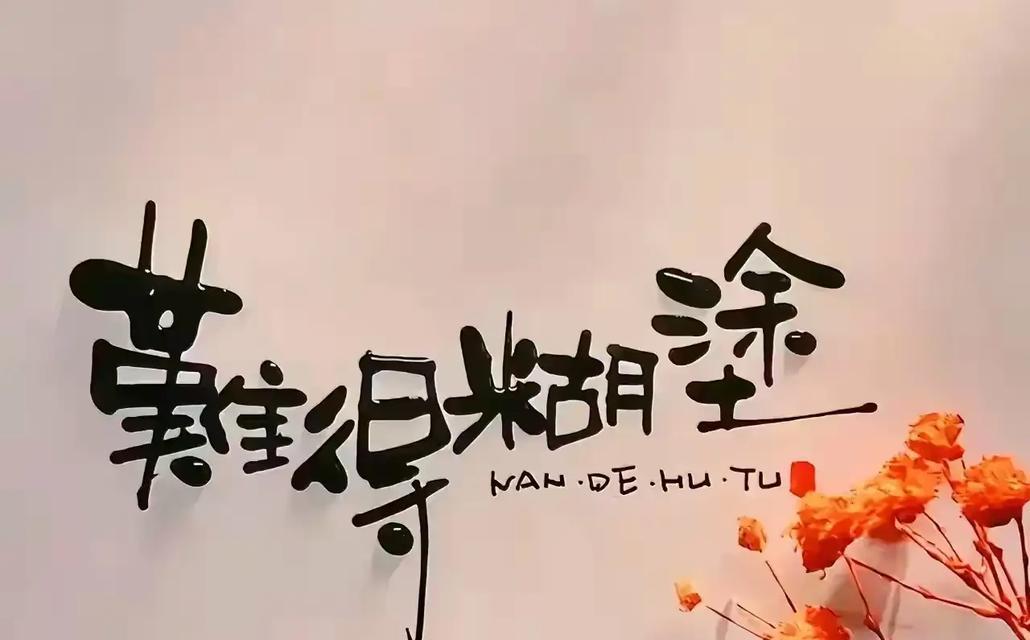 難得糊塗
NAN·DE·HU·TU